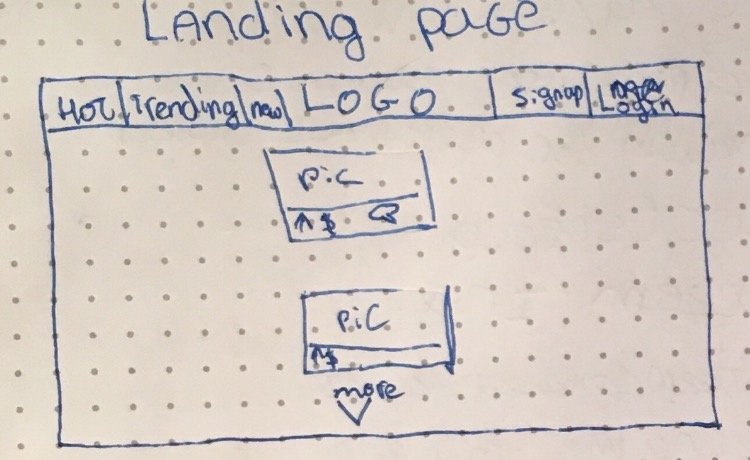 Landing page
Hot Trending new LOGO Signup Login
pic
↑ $
pic
↑ $
more